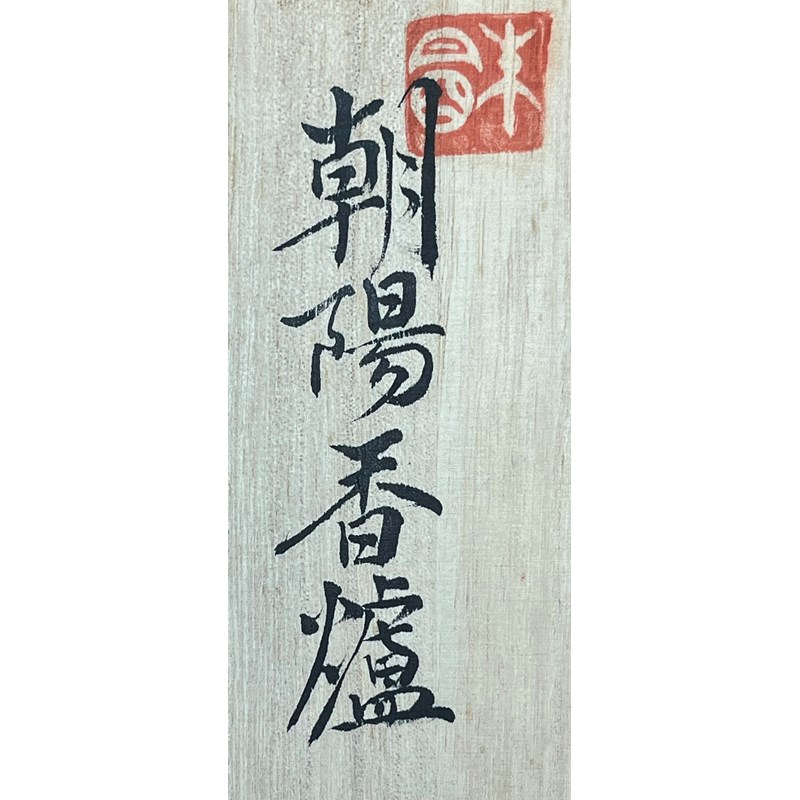 朝陽香爐